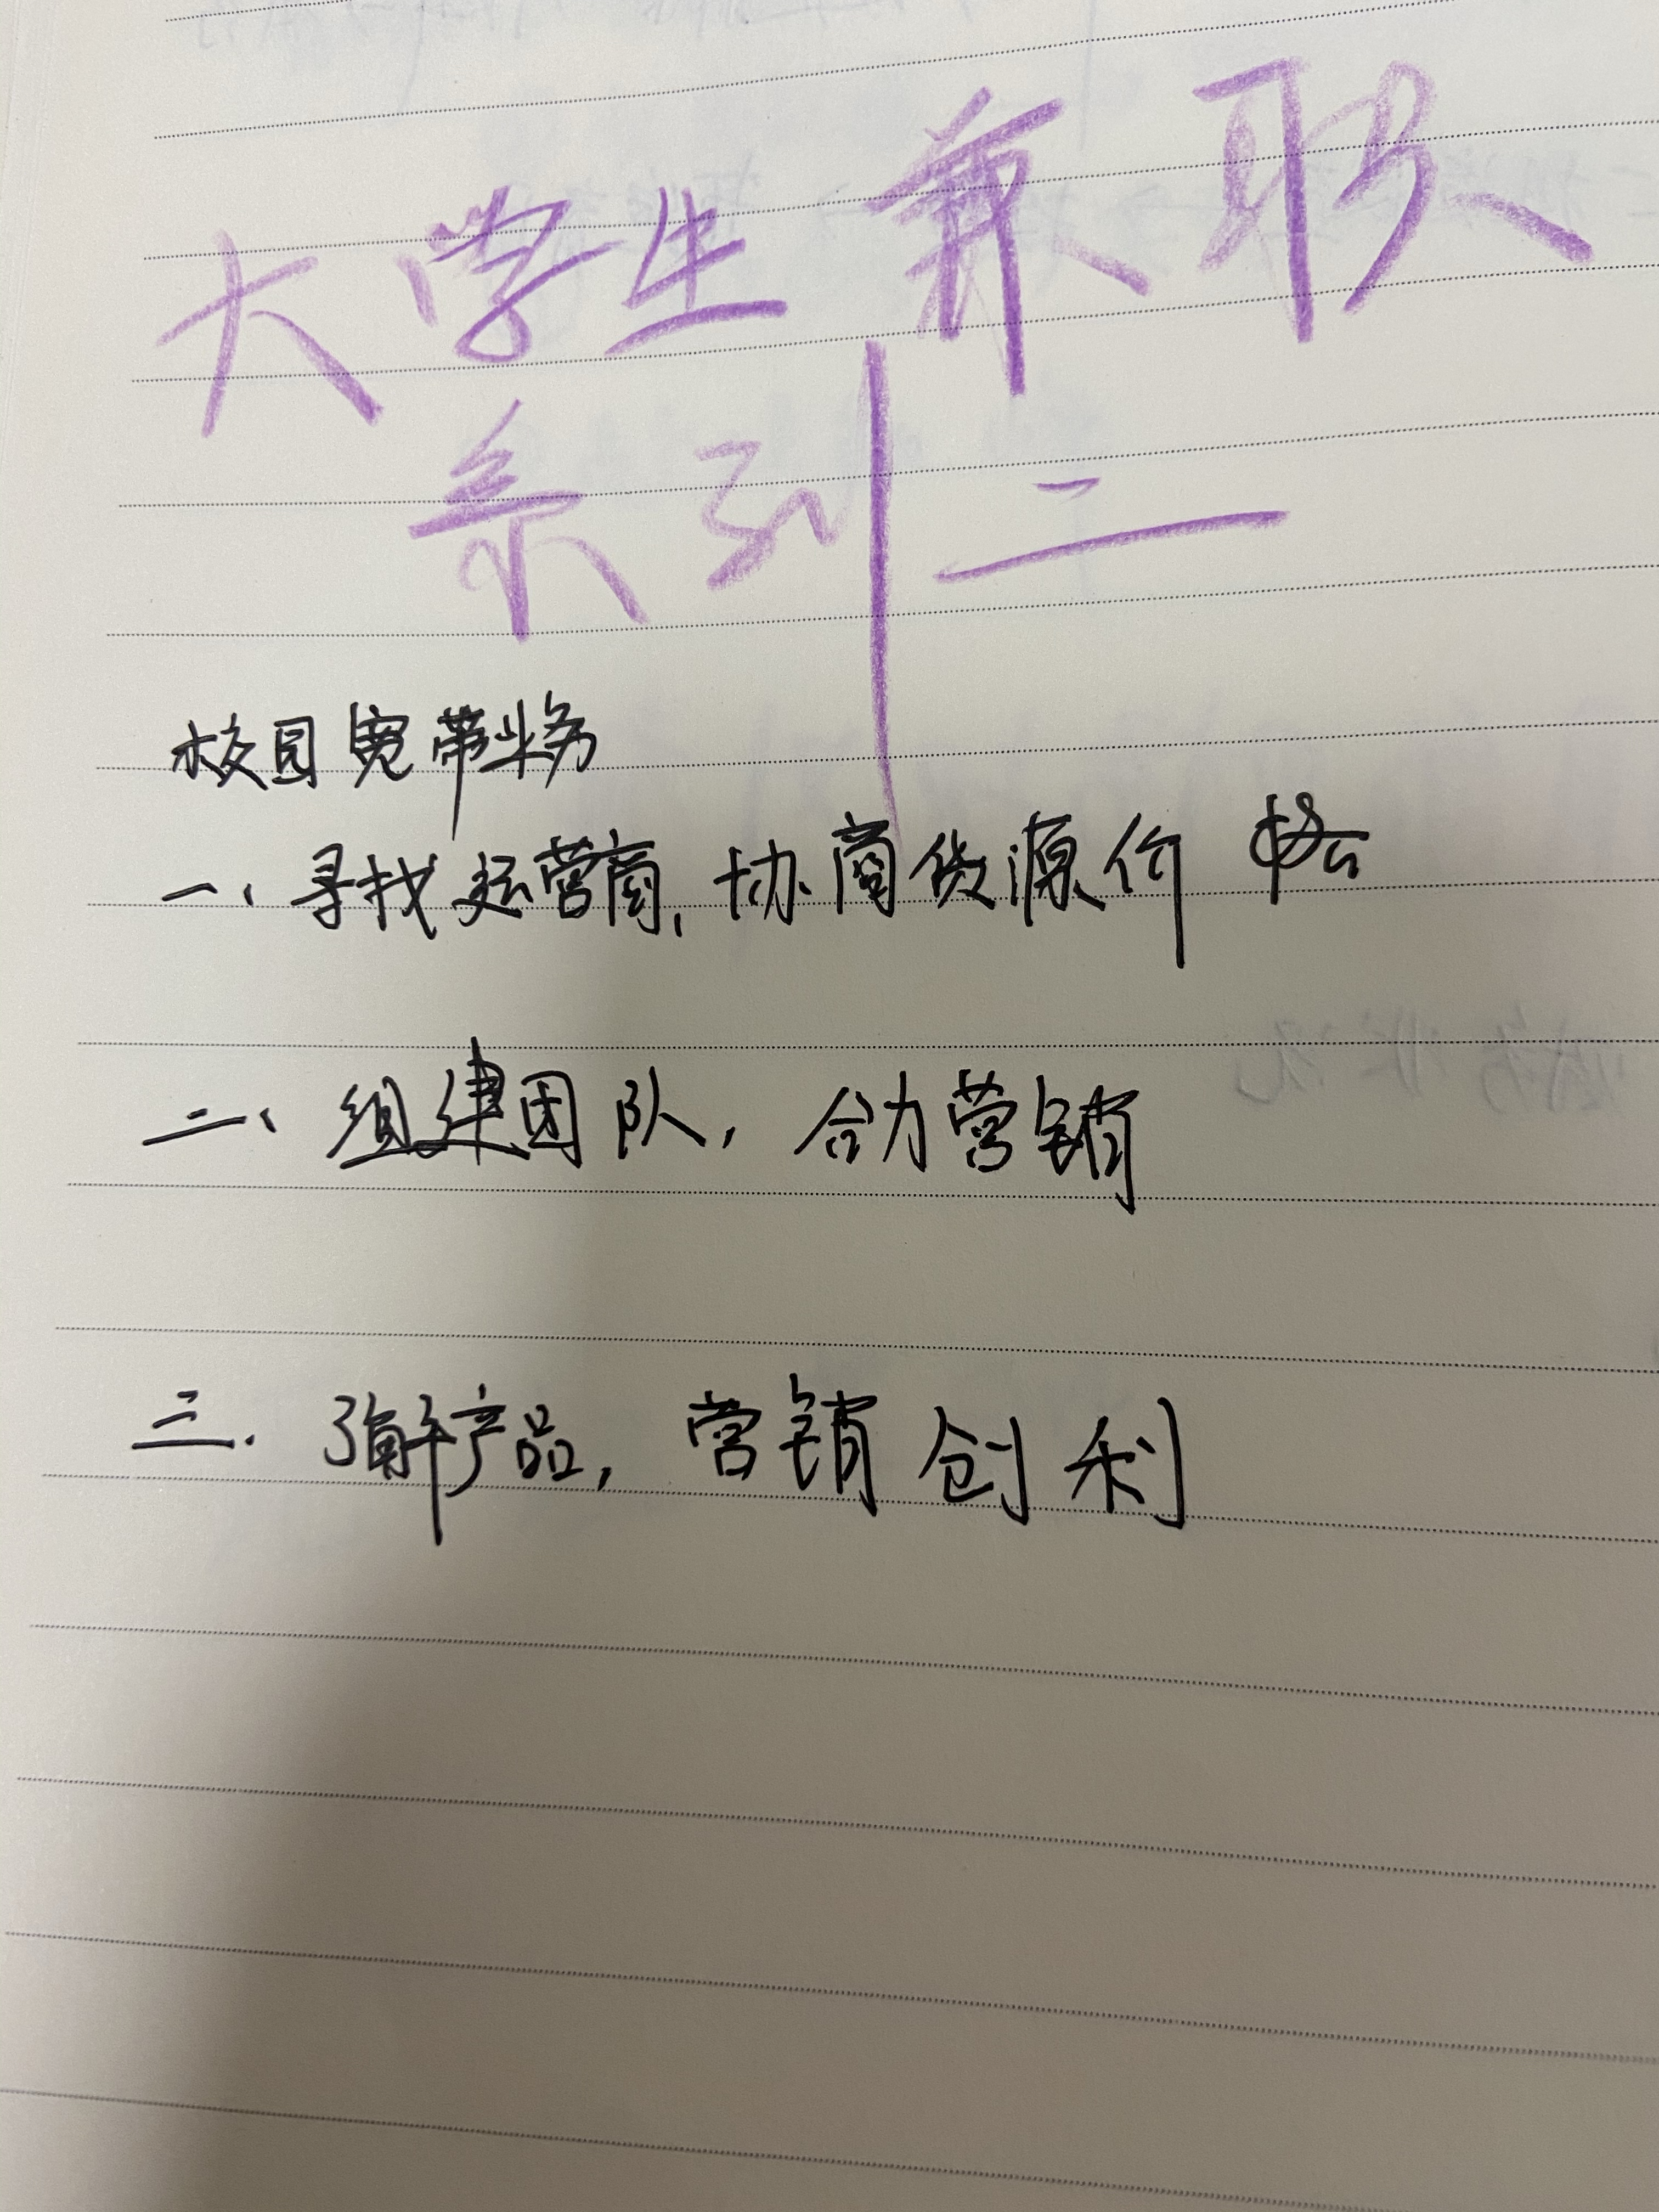 大学生兼职
系列二
校园宽带业务
一、寻找运营商,协商货源价格
二、组建团队,合力营销
三.了解产品,营销创利